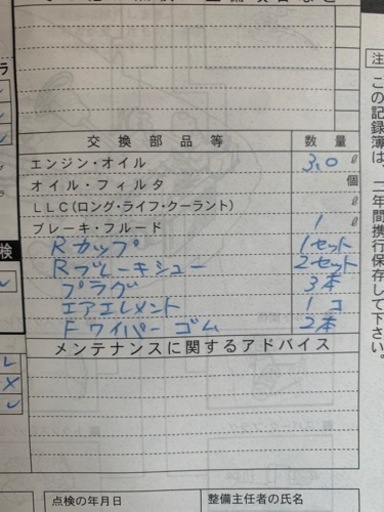 交換部品等 数量
エンジン・オイル 3.0 ℓ
オイル・フィルタ 個
LLC(ロング・ライフ・クーラント) ℓ
ブレーキ・フルード 1 ℓ
Rカップ 1セット
Rブレーキシュー 2セット
プラグ 3本
エアエレメント 1コ
Fワイパーゴム 2本
メンテナンスに関するアドバイス
点検の年月日 整備主任者の氏名
注
この記録簿は、二年間携行保存して下さい。